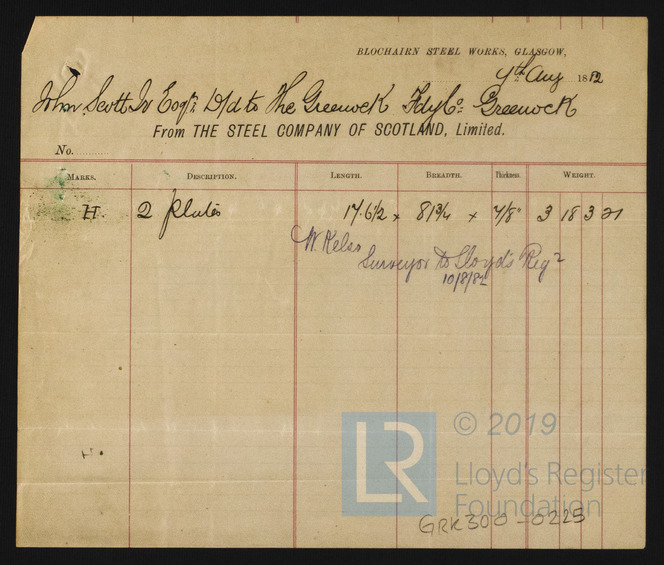 BLOCHAIRN STEEL WORKS, GLASGOW,
9th Aug 1882
John Scott Jr Esqr D/d to The Greenock Fdy Co. Greenock
From THE STEEL COMPANY OF SCOTLAND, Limited.
No.
MARKS. DESCRIPTION. LENGTH. BREADTH. Thickness. WEIGHT.
H 2 plates 17.6 1/2 x 81 3/4 x 7/8" 3 18 3 21
W. Kelso
Surveyor to Lloyd's Regr
10/8/82
H.
LR © 2019
Lloyd's Register
Foundation
GRK300-0225